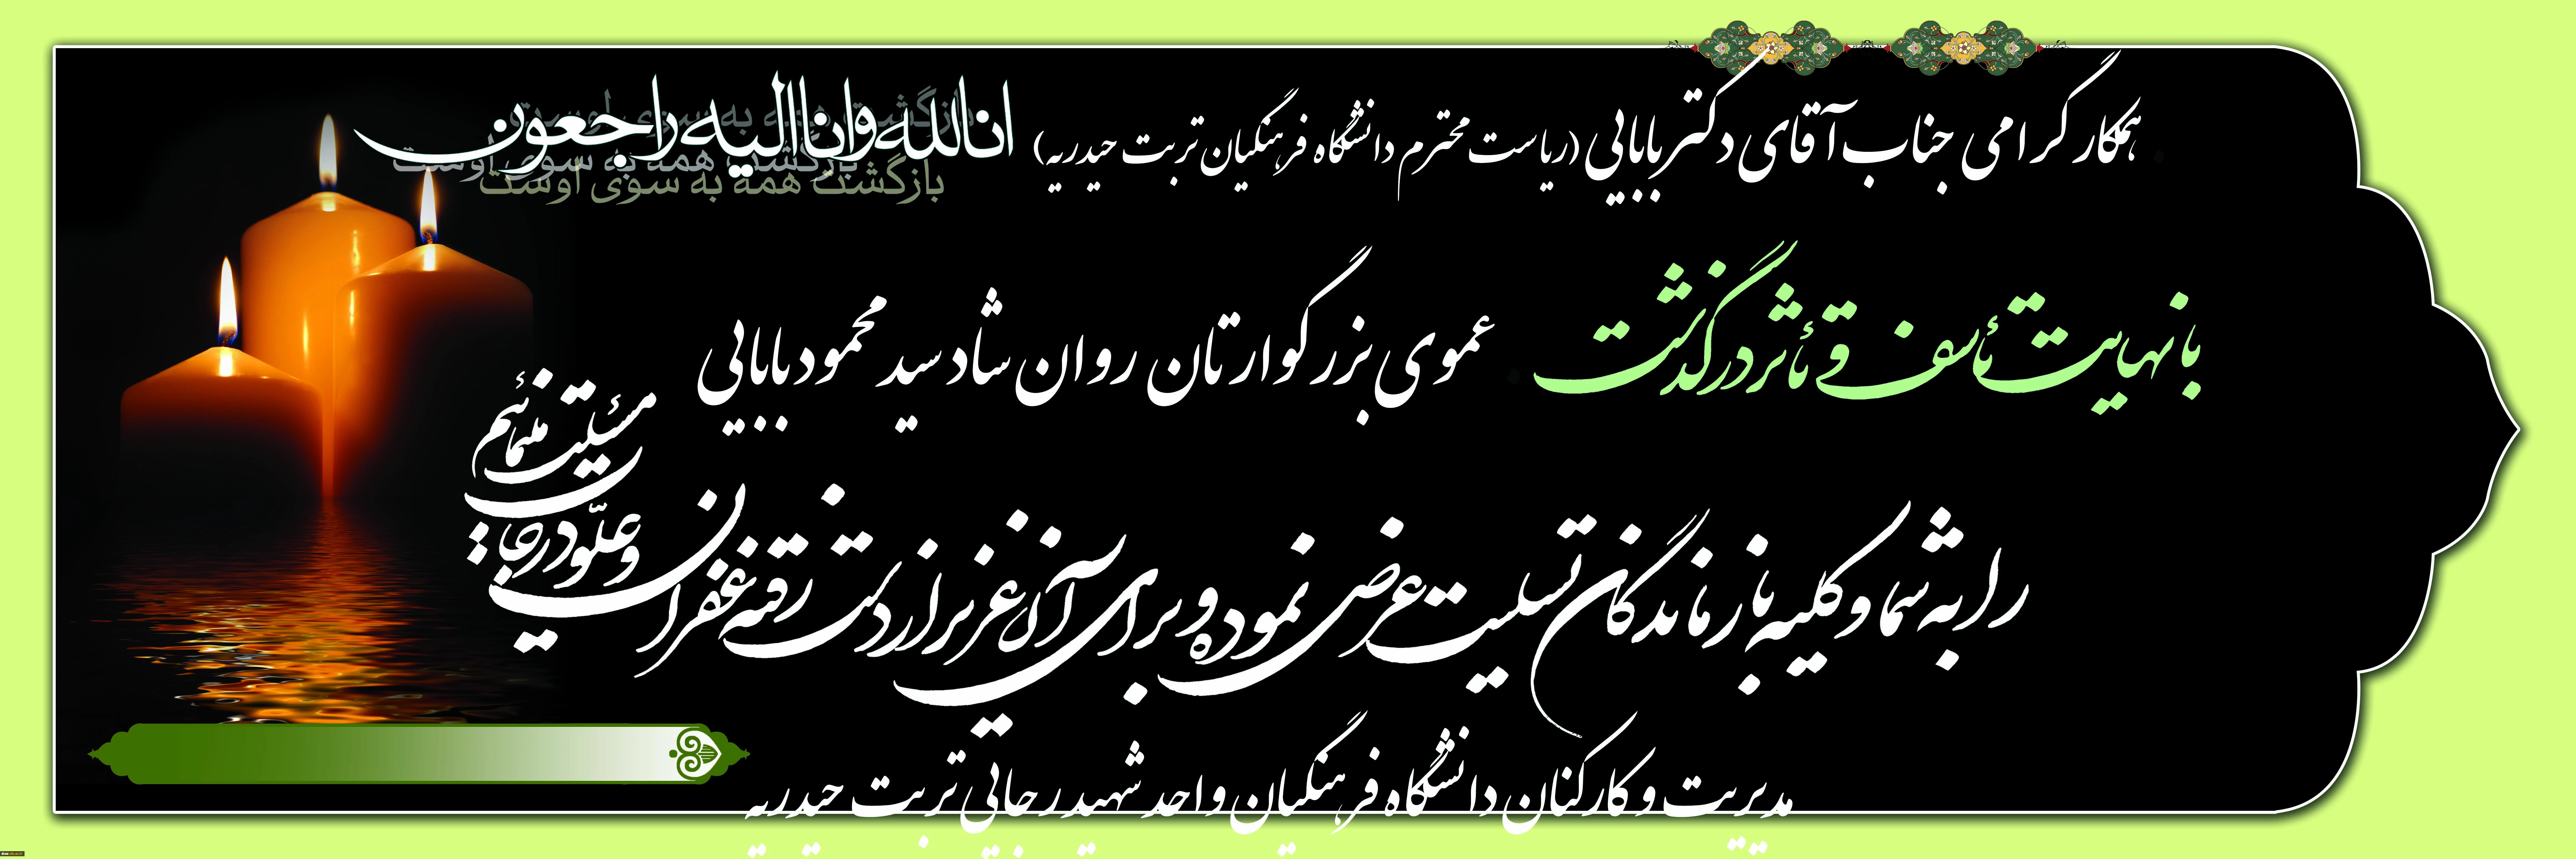 اناللہ وانا الیه راجعون
بازگشت همه به سوی اوست
بازگشت همه به سوی اوست
بازگشت همه به سوی اوست
همکار گرامی جناب آقای دکتر بابایی (ریاست محترم دانشگاه فرهنگیان تربت حیدریه)
با نهایت تأسف و تأثر درگذشت عموی بزرگوارتان روان شاد سید محمود بابایی
را به شما و کلیه بازماندگان تسلیت عرض نموده و برای آن عزیز از دست رفته غفران
و علو درجات
مسئلت می‌نمائیم
مدیریت و کارکنان دانشگاه فرهنگیان واحد شهید رجائی تربت حیدریه